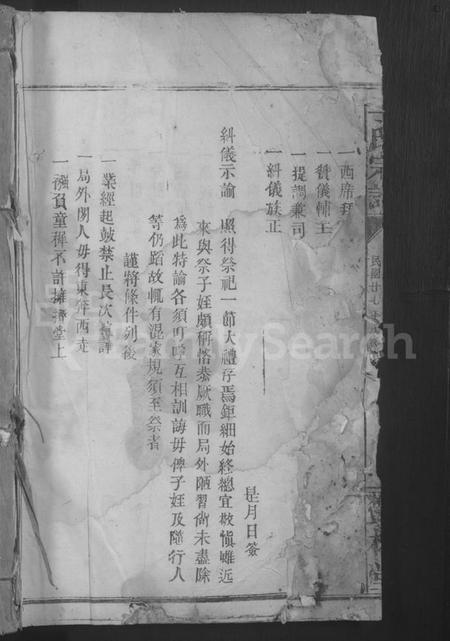 一西席拜
一贊儀輔王
一提調兼司
一糾儀族正
是月日簽
糾儀示諭 照得祭祀一節大禮存焉鉅細始終總宜敬慎雖近
來與祭子姪頗稱恪恭厥職而局外陋習尚未盡除
為此特諭各須叮嚀互相訓誨毋俾子姪及隨行人
等仍蹈故輒有混家規須至祭者
謹將條件列後
一業經起鼓禁止長次
一局外閑人毋得東奔西走
一襁負童穉不許擁擠堂上
氏宗譜
民國廿七
堂
FamilySearch